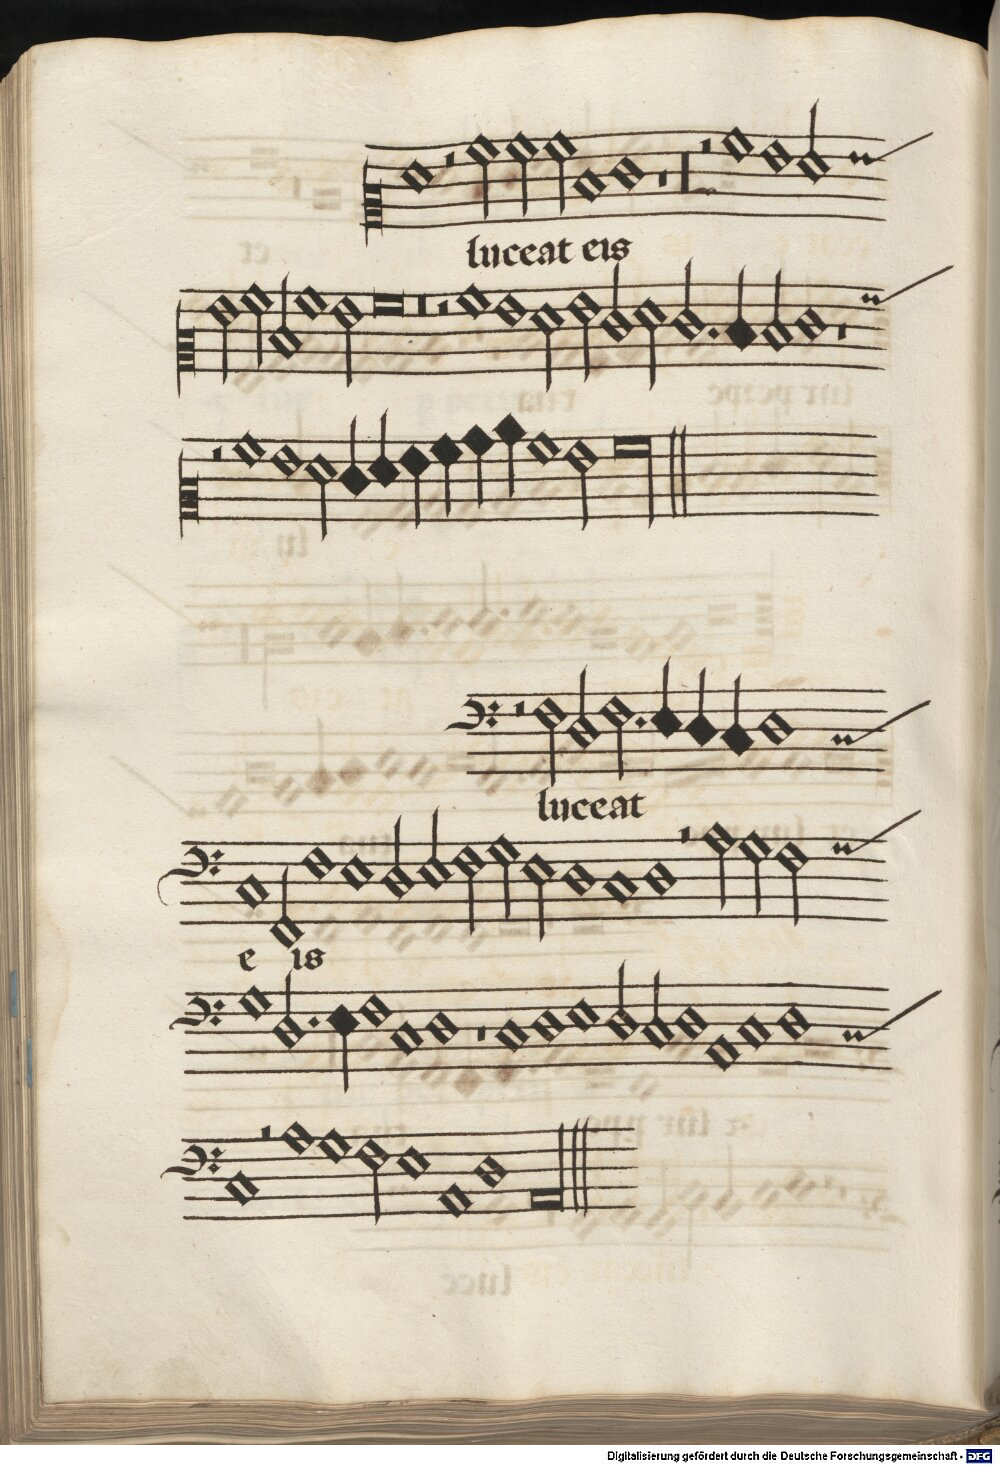 luceat eis
luceat
e is
Digitalisierung gefördert durch die Deutsche Forschungsgemeinschaft - DFG